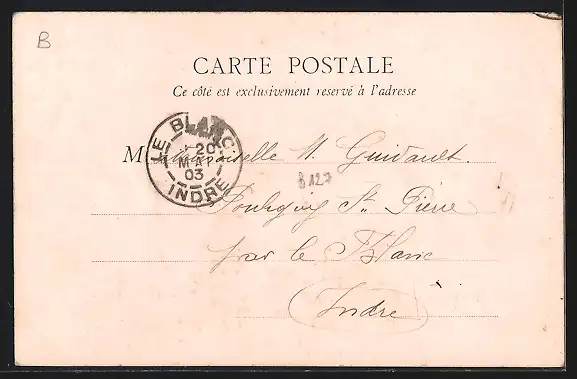 B
CARTE POSTALE
Ce côté est exclusivement reservé à l'adresse
LE BLANC
20
MAI
03
INDRE
Mademoiselle M. Guidault.
B127
Pouligny St. Pierre
par le Blanc
(Indre)